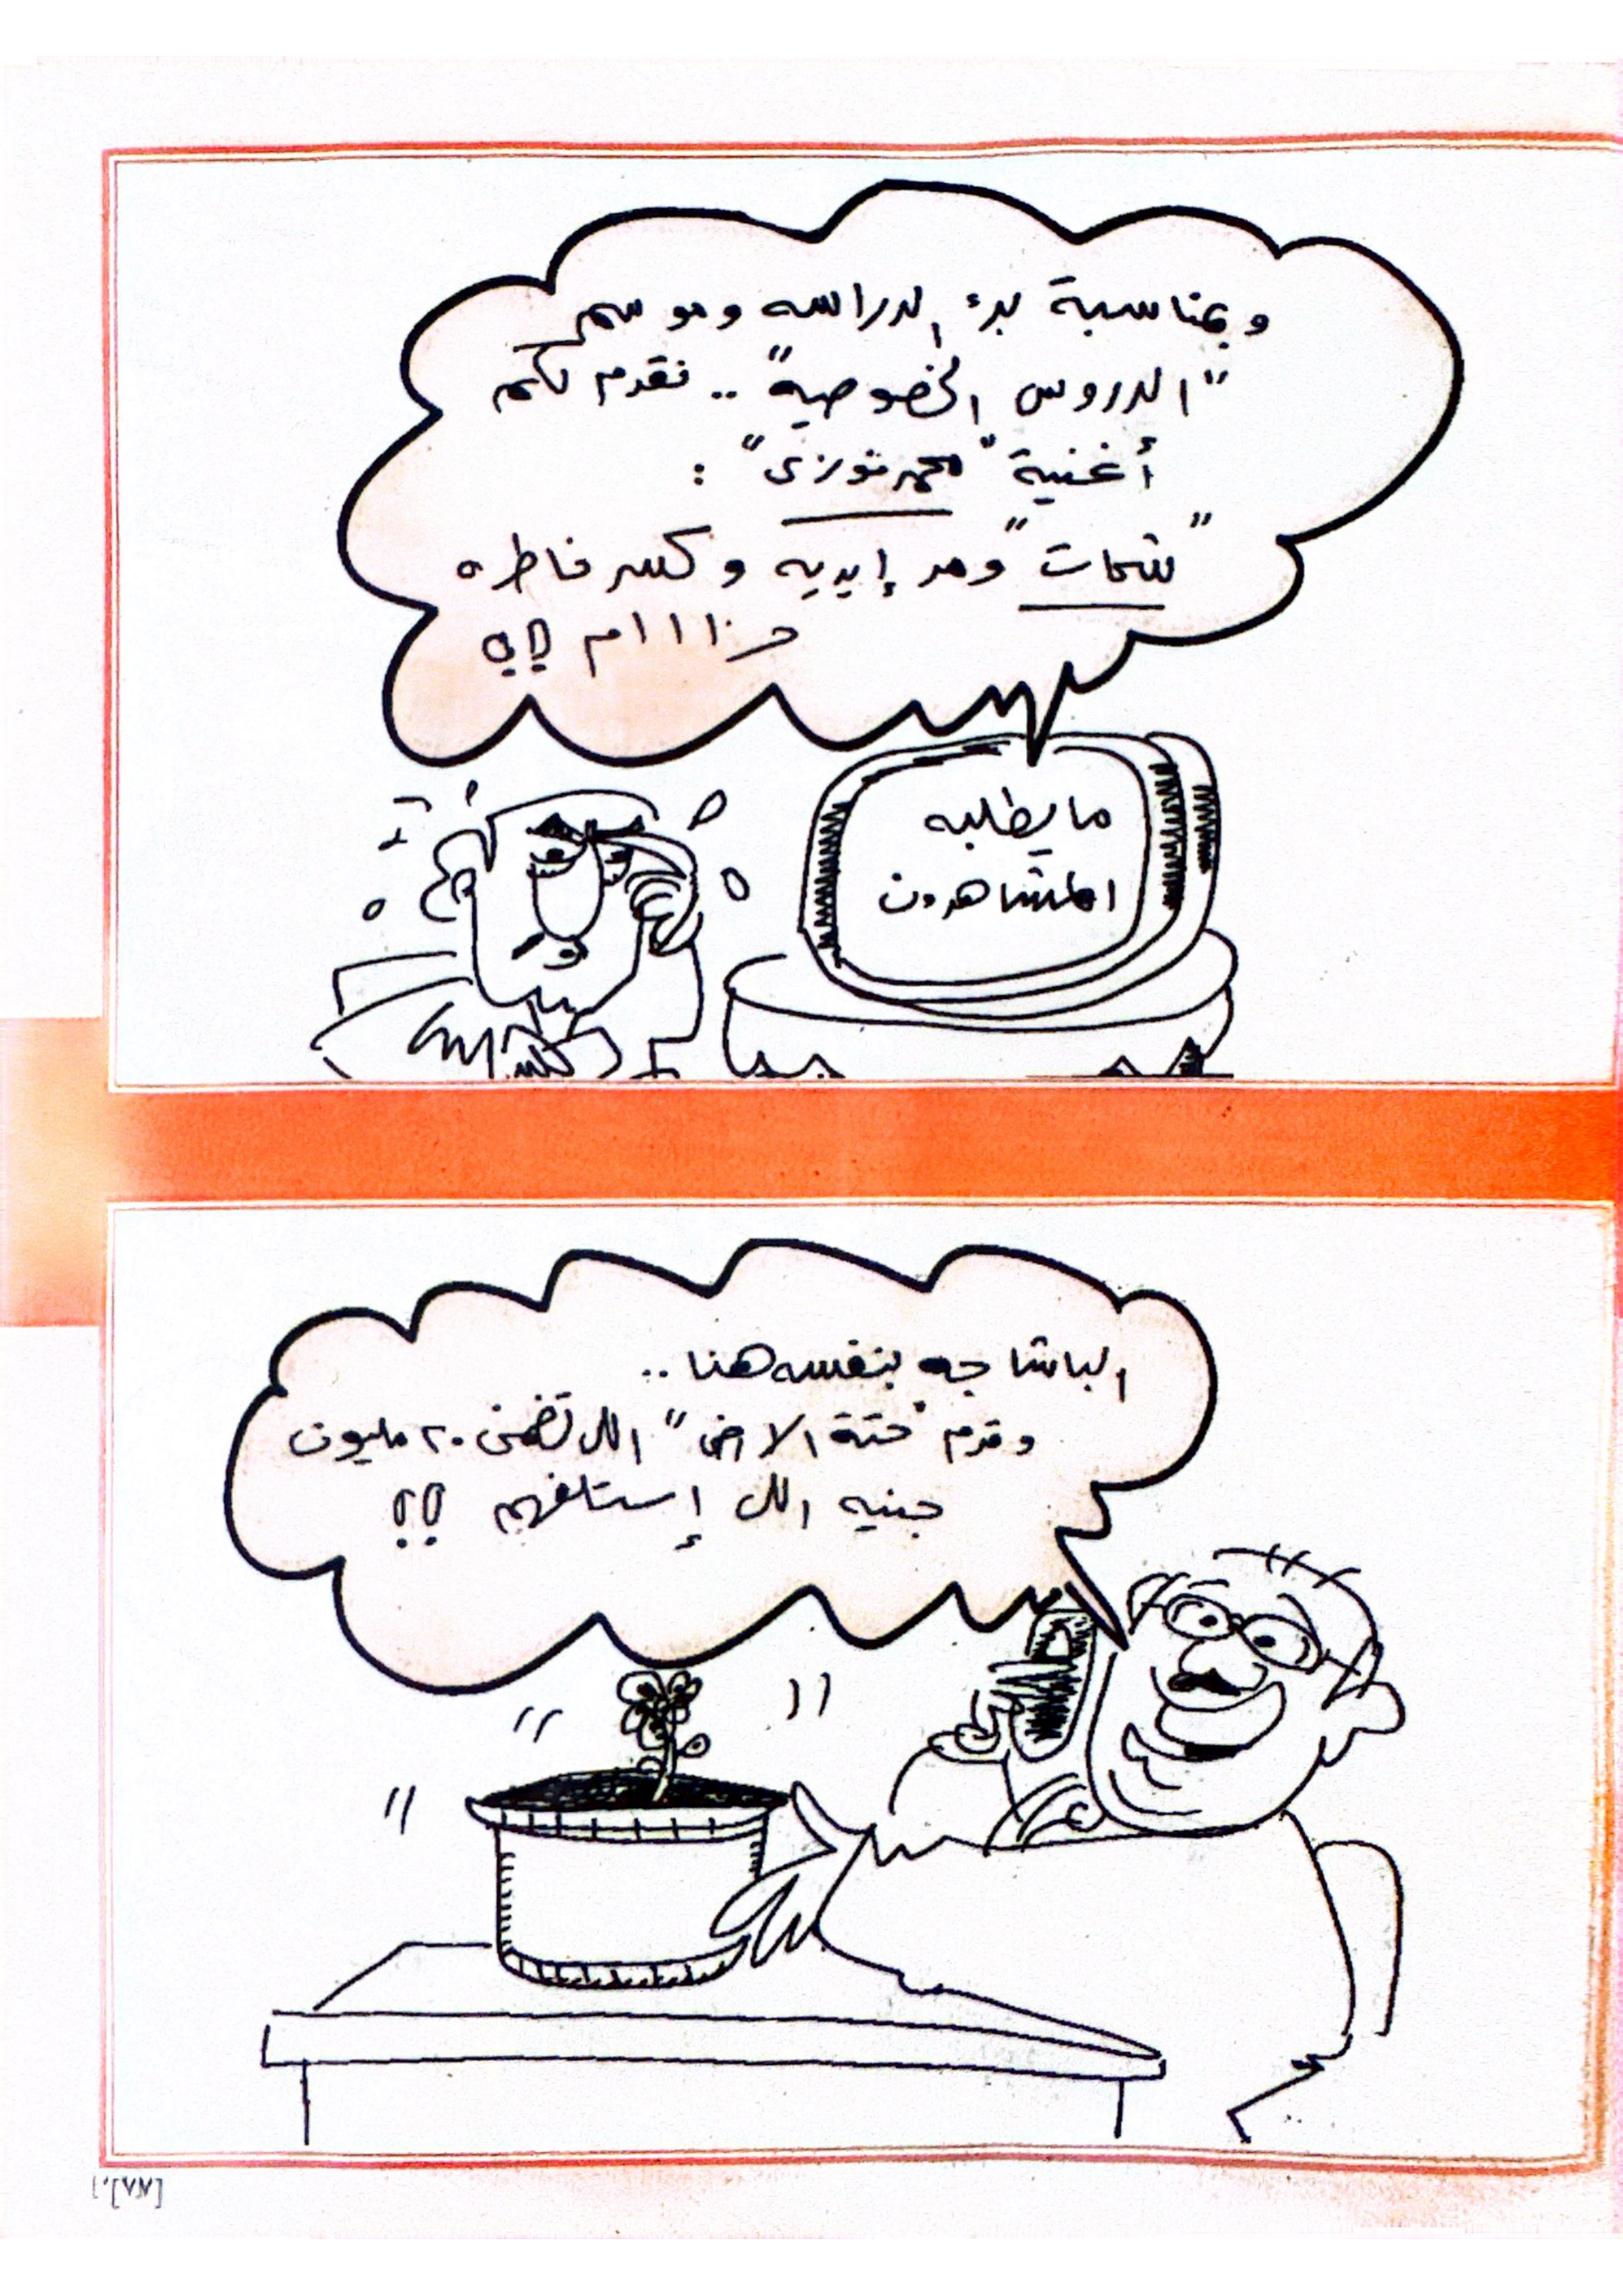 وبمناسبة بدء الدراسه وموسم
"الدروس الخصوصية" .. نقدم لكم
أغنية "محمد فوزى" :
"شحات" ومد إيديه وكسر خاطره
حرااام !!؟
ما يطلبه
المشاهدون
الباشا جه بنفسه هنا ..
وقدم "حتة الارض" اللى تضمن ٢٠ مليون
جنيه اللى إستلفهم !!؟